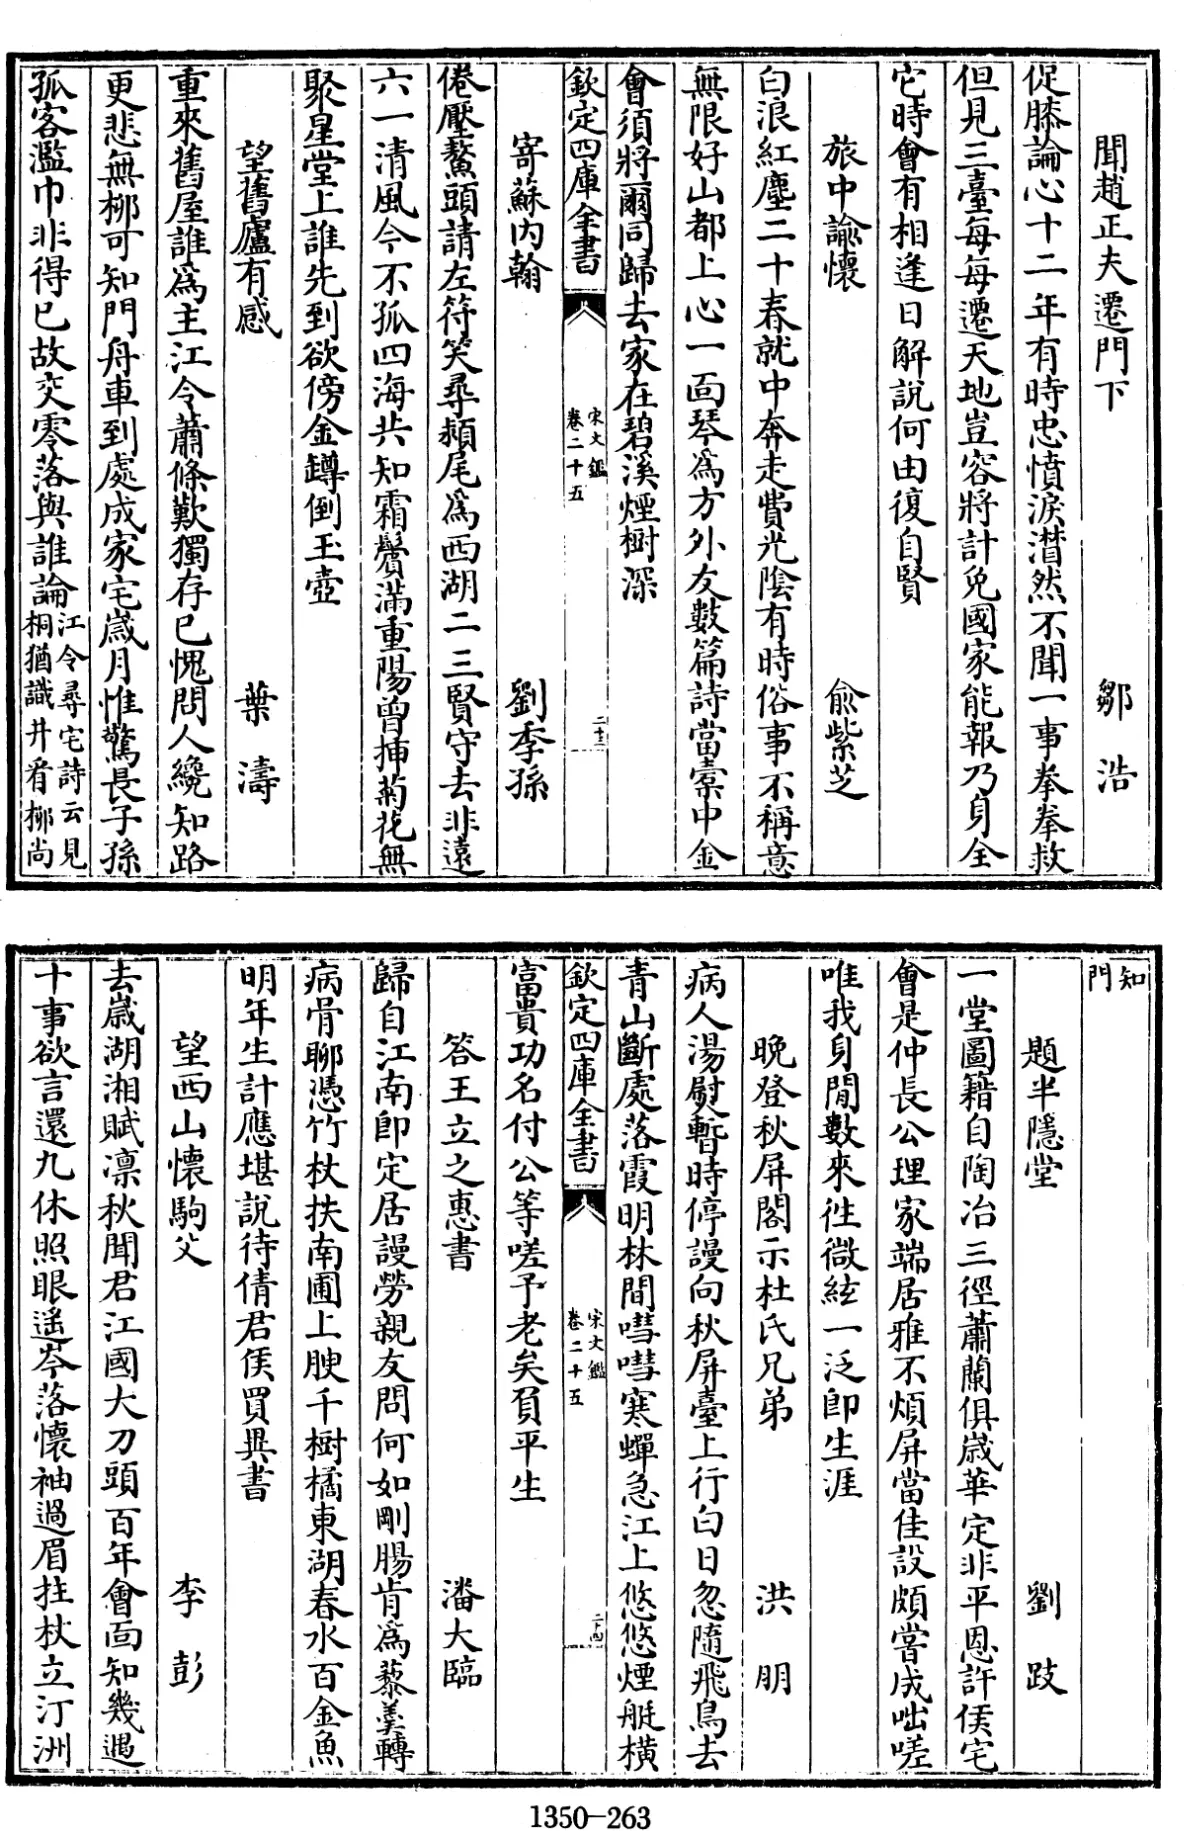 聞趙正夫遷門下 鄒浩
促膝論心十二年有時忠憤淚潸然不聞一事拳拳救
但見三臺每每遷天地豈容將計免國家能報乃身全
它時會有相逢日解說何由復自賢
旅中諭懷 俞紫芝
白浪紅塵二十春就中奔走費光陰有時俗事不稱意
無限好山都上心一面琴為方外友數篇詩當橐中金
會須將爾同歸去家在碧溪煙樹深
欽定四庫全書 宋文鑑 卷二十五 二十三
寄蘇內翰 劉季孫
倦壓鰲頭請左符笑尋頳尾為西湖二三賢守去非遠
六一清風今不孤四海共知霜鬢滿重陽曾揷菊花無
聚星堂上誰先到欲傍金罇倒玉壺
望舊廬有感 葉濤
重來舊屋誰為主江令蕭條歎獨存已愧問人纔知路
更悲無柳可知門舟車到處成家宅歲月惟驚長子孫
孤客濫巾非得已故交零落與誰論江令尋宅詩云見桐猶識井看柳尚
知門
題半隱堂 劉跂
一堂圖籍自陶冶三徑蕭蘭俱歲華定非平恩許侯宅
會是仲長公理家端居雅不煩屏當佳設頗嘗成咄嗟
唯我身閒數來往微絃一泛即生涯
晚登秋屏閣示杜氏兄弟 洪朋
病人湯熨暫時停謾向秋屏臺上行白日忽隨飛鳥去
青山斷處落霞明林間嘒嘒寒蟬急江上悠悠煙艇橫
欽定四庫全書 宋文鑑 卷二十五 二十四
富貴功名付公等嗟予老矣負平生
答王立之惠書 潘大臨
歸自江南即定居謾勞親友問何如剛腸肯為藜羮轉
病骨聊憑竹杖扶南圃上腴千樹橘東湖春水百金魚
明年生計應堪說待倩君侯買異書
望西山懷駒父 李彭
去歲湖湘賦凛秋聞君江國大刀頭百年會面知幾遇
十事欲言還九休照眼遥岑落懷袖過眉拄杖立汀洲
1350-263